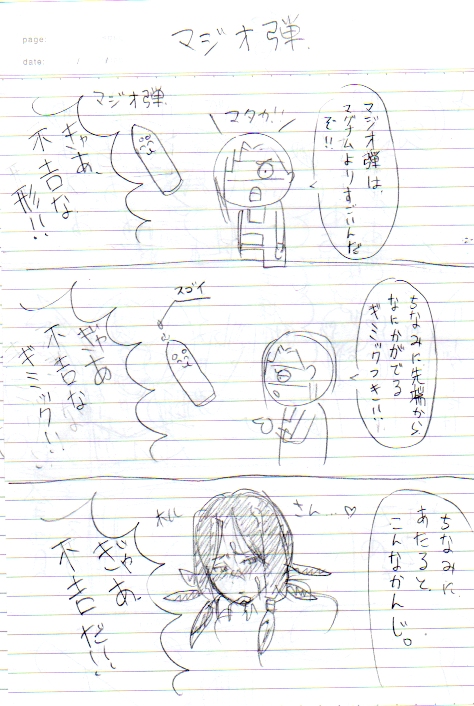 page:
date: / /
マジオ弾
マジオ弾は、
マグナムよりすごいんだ
ぞ!!
マタガリ
マジオ弾
ぎゃあ、
不吉な
形!!
ちなみに先端から
なにかがでる
ギミックつき!!
スゴイ
ぎゃあ
不吉な
ギミック!!
ちなみに、
あたると、
こんなかんじ。
さん…♡
ぎゃあ、
不吉だ!!